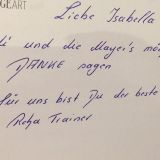 GEART
Liebe Isabella
und die Mayer's
DANKE sagen
für uns bist Du der beste
Reha Trainer